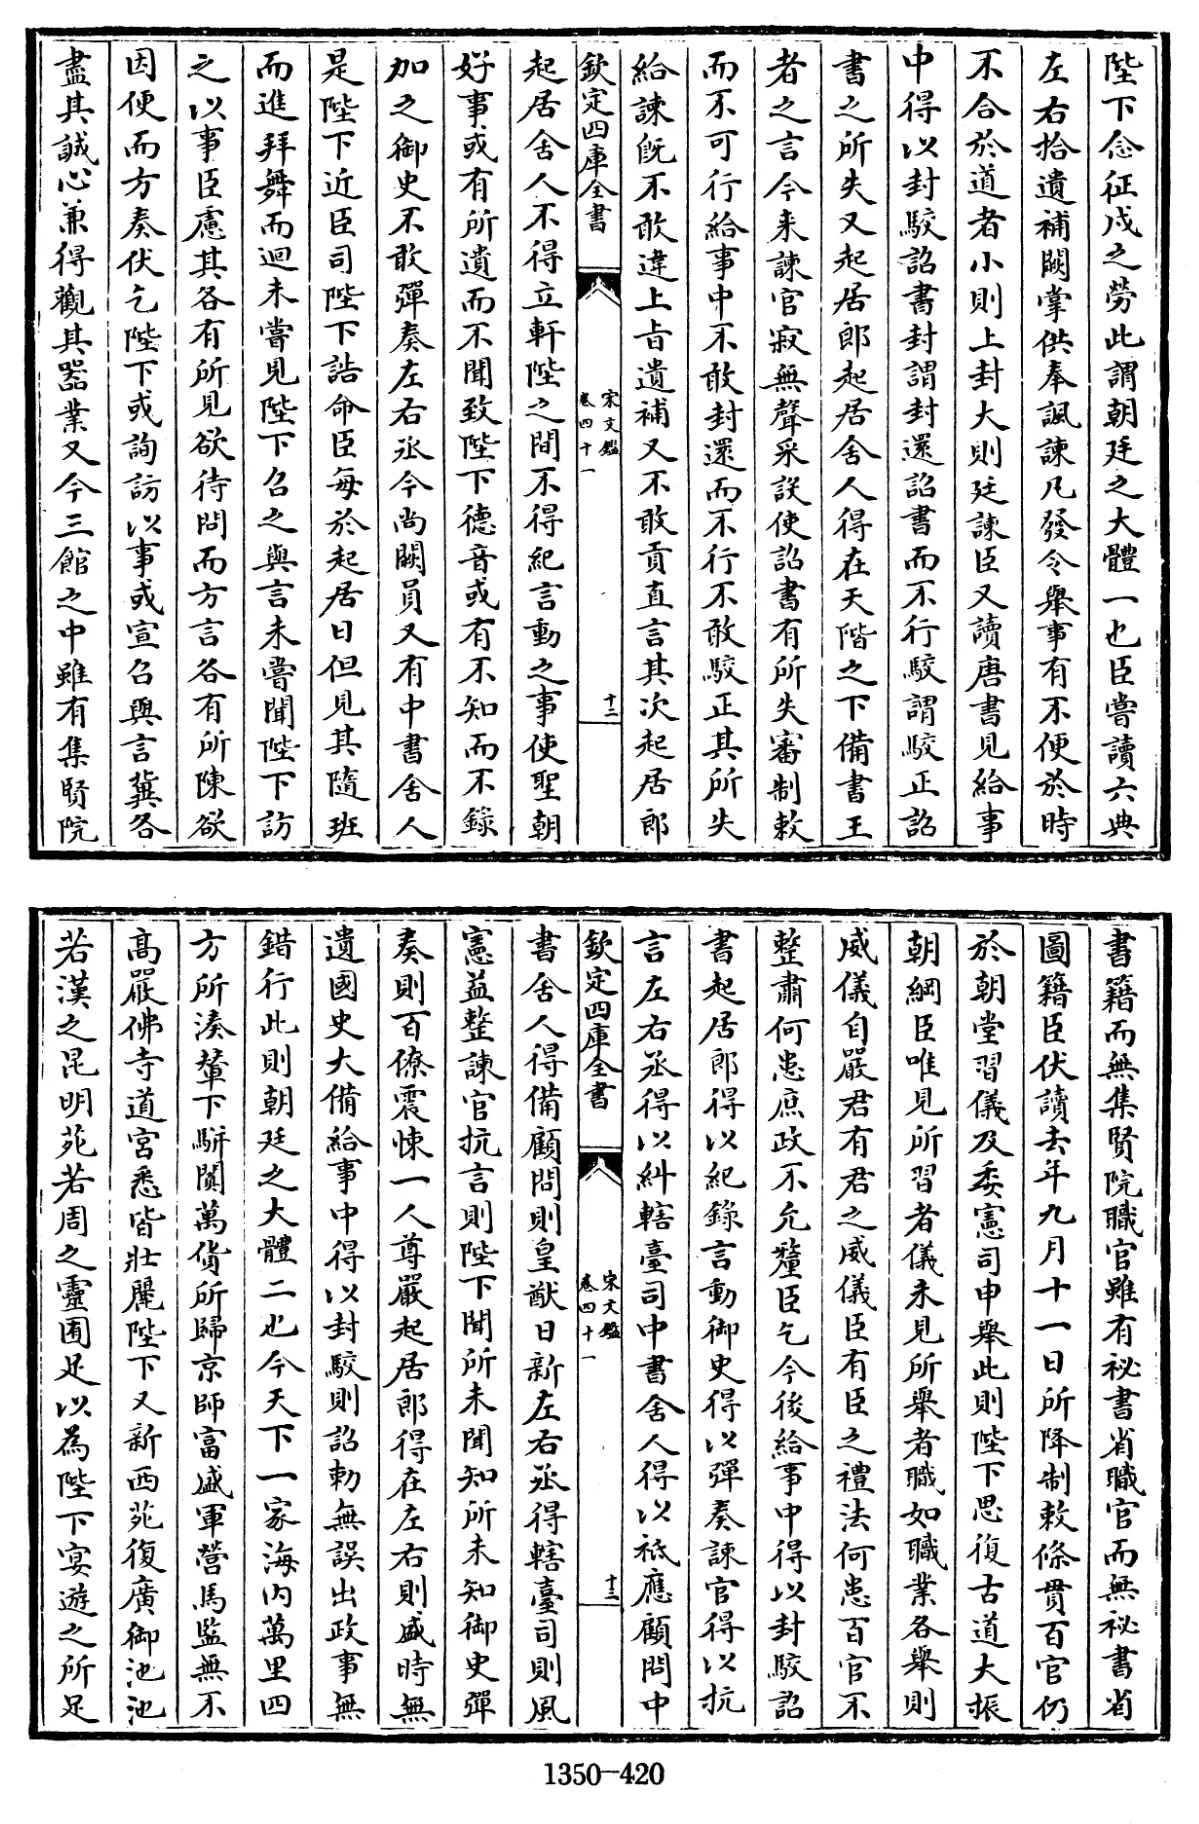 陛下念征戍之勞此謂朝廷之大體一也臣嘗讀六典
左右拾遺補闕掌供奉諷諫凡發令舉事有不便於時
不合於道者小則上封大則廷諫臣又讀唐書見給事
中得以封駮詔書封謂封還詔書而不行駮謂駮正詔
書之所失又起居郎起居舍人得在天階之下備書王
者之言今來諫官寂無聲采設使詔書有所失審制敕
而不可行給事中不敢封還而不行不敢駮正其所失
給諫旣不敢違上旨遺補又不敢貢直言其次起居郎
欽定四庫全書
宋文鑑
卷四十一
十二
起居舍人不得立軒陛之間不得紀言動之事使聖朝
好事或有所遺而不聞致陛下德音或有不知而不錄
加之御史不敢彈奏左右丞今尚闕員又有中書舍人
是陛下近臣司陛下誥命臣每於起居日但見其隨班
而進拜舞而迴未嘗見陛下召之與言未嘗聞陛下訪
之以事臣慮其各有所見欲待問而方言各有所陳欲
因便而方奏伏乞陛下或詢訪以事或宣召與言冀各
盡其誠心兼得觀其器業又今三館之中雖有集賢院
書籍而無集賢院職官雖有祕書省職官而無祕書省
圖籍臣伏讀去年九月十一日所降制敕條貫百官仍
於朝堂習儀及委憲司申舉此則陛下思復古道大振
朝綱臣唯見所習者儀未見所舉者職如職業各舉則
威儀自嚴君有君之威儀臣有臣之禮法何患百官不
整肅何患庶政不允釐臣乞今後給事中得以封駮詔
書起居郎得以紀錄言動御史得以彈奏諫官得以抗
言左右丞得以糾轄臺司中書舍人得以祗應顧問中
欽定四庫全書
宋文鑑
卷四十一
十三
書舍人得備顧問則皇猷日新左右丞得轄臺司則風
憲益整諫官抗言則陛下聞所未聞知所未知御史彈
奏則百僚震悚一人尊嚴起居郎得在左右則盛時無
遺國史大備給事中得以封駮則詔勅無誤出政事無
錯行此則朝廷之大體二也今天下一家海內萬里四
方所湊輦下駢闐萬貨所歸京師富盛軍營馬監無不
高嚴佛寺道宮悉皆壯麗陛下又新西苑復廣御池池
若漢之昆明苑若周之靈囿足以為陛下宴遊之所足
1350-420